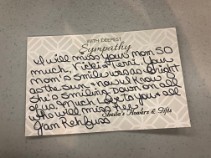 WITH DEEPEST
Sympathy
I will miss your mom SO
much, Vicki & Terri. Your
Mom's smile was as bright
as the sun & now I know
she's smiling down on all
of us. Much love to you all
who will miss her.
Pam
Flowers & Gifts